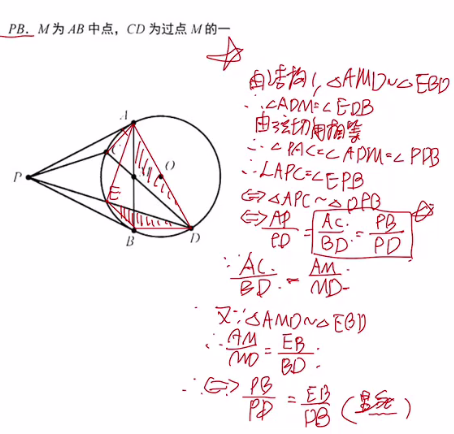 PB. M 为 AB 中点，CD 为过点 M 的一
由结构1, △AMD∽△EBD
∴∠ADM=∠EDB
由弦切角相等
∴∠PAC=∠ADM=∠PDB
∴∠APC=∠EPB
⇔△APC∽△DPB
⇔AP/PD=AC/BD=PB/PD
∵AC/BD=AM/MD
又∵△AMD∽△EBD
∴AM/MD=EB/BD
∴⇔PB/PD=EB/DB(显然)
A
C
M
O
P
E
B
D